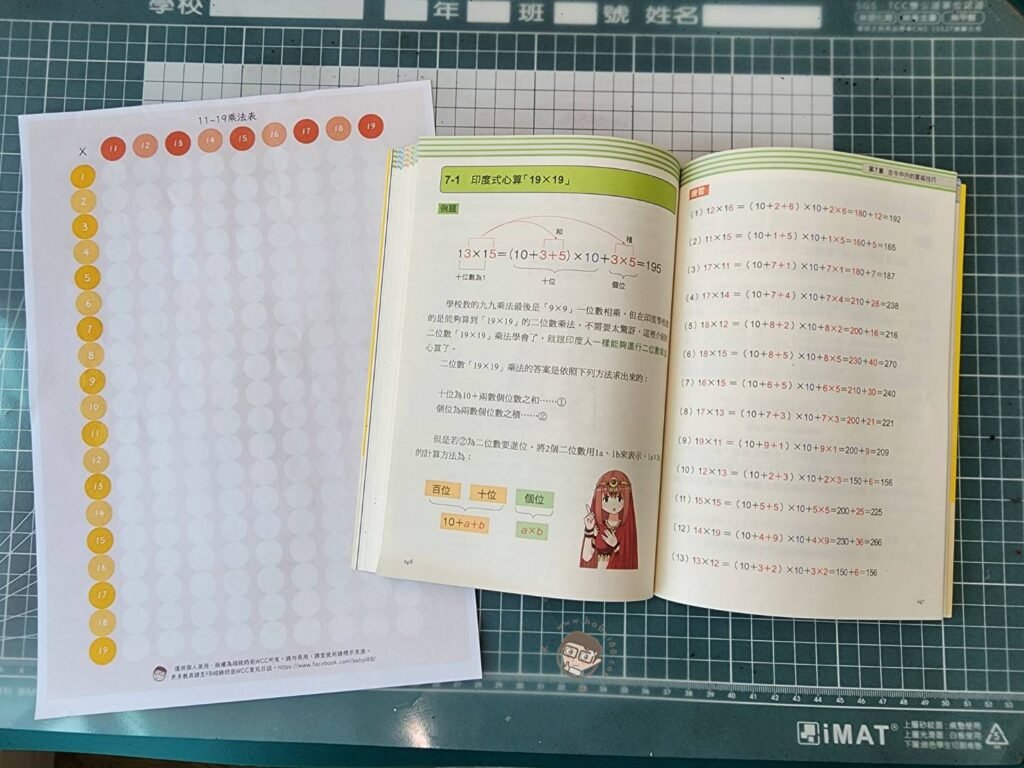 學校 年 班 號 姓名
11-19乘法表
X 11 12 13 14 15 16 17 18 19
1
2
3
4
5
6
7
8
9
10
11
12
13
14
15
16
17
18
19
僅供個人使用，版權為超級奶爸WCC所有。請勿商用，課堂使用請標示來源。
更多教具請至FB超級奶爸WCC育兒日誌。https://www.facebook.com/babyi88/
7-1 印度式心算「19×19」
例題
和
積
13×15=(10+3+5)×10+3×5=195
十位數為1
十位
個位
學校教的九九乘法最後是「9×9」一位數相乘，但在印度學校教
的是能夠算到「19×19」的二位數乘法。不需要太驚訝，這裡介紹的
二位數「19×19」乘法學會了，就跟印度人一樣能夠進行二位數乘法
心算了。
二位數「19×19」乘法的答案是依照下列方法求出來的：
十位為10＋兩數個位數之和……①
個位為兩數個位數之積……②
但是若②為二位數要進位。將2個二位數用1a、1b來表示，1a×1b
的計算方法為：
百位 十位 個位
10+a+b a×b
146
第7章 古今中外的算術技巧
練習
(1) 12×16 = (10+2+6) ×10+2×6=180+12=192
(2) 11×15 = (10+1+5) ×10+1×5=160+5=165
(3) 17×11 = (10+7+1) ×10+7×1=180+7=187
(4) 17×14 = (10+7+4) ×10+7×4=210+28=238
(5) 18×12 = (10+8+2) ×10+8×2=200+16=216
(6) 18×15 = (10+8+5) ×10+8×5=230+40=270
(7) 16×15 = (10+6+5) ×10+6×5=210+30=240
(8) 17×13 = (10+7+3) ×10+7×3=200+21=221
(9) 19×11 = (10+9+1) ×10+9×1=200+9=209
(10) 12×13 = (10+2+3) ×10+2×3=150+6=156
(11) 15×15 = (10+5+5) ×10+5×5=200+25=225
(12) 14×19 = (10+4+9) ×10+4×9=230+36=266
(13) 13×12 = (10+3+2) ×10+3×2=150+6=156
147
iMAT®
上層砂紋面：桌墊使用
上層光滑面：白板使用
下層:綠色學生切割桌墊
5